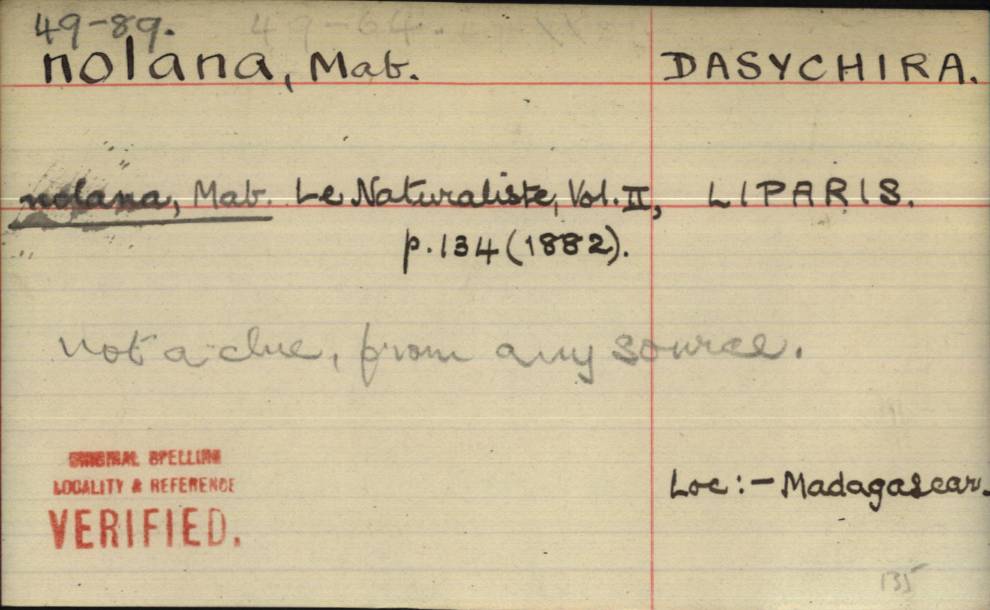 49-89.
nolana, Mab. DASYCHIRA.
nolana, Mab. Le Naturaliste, Vol. II, LIPARIS.
p. 134 (1882).
not a clue, from any source.
ORIGINAL SPELLING
LOCALITY & REFERENCE
VERIFIED.
Loc:- Madagascar.
135